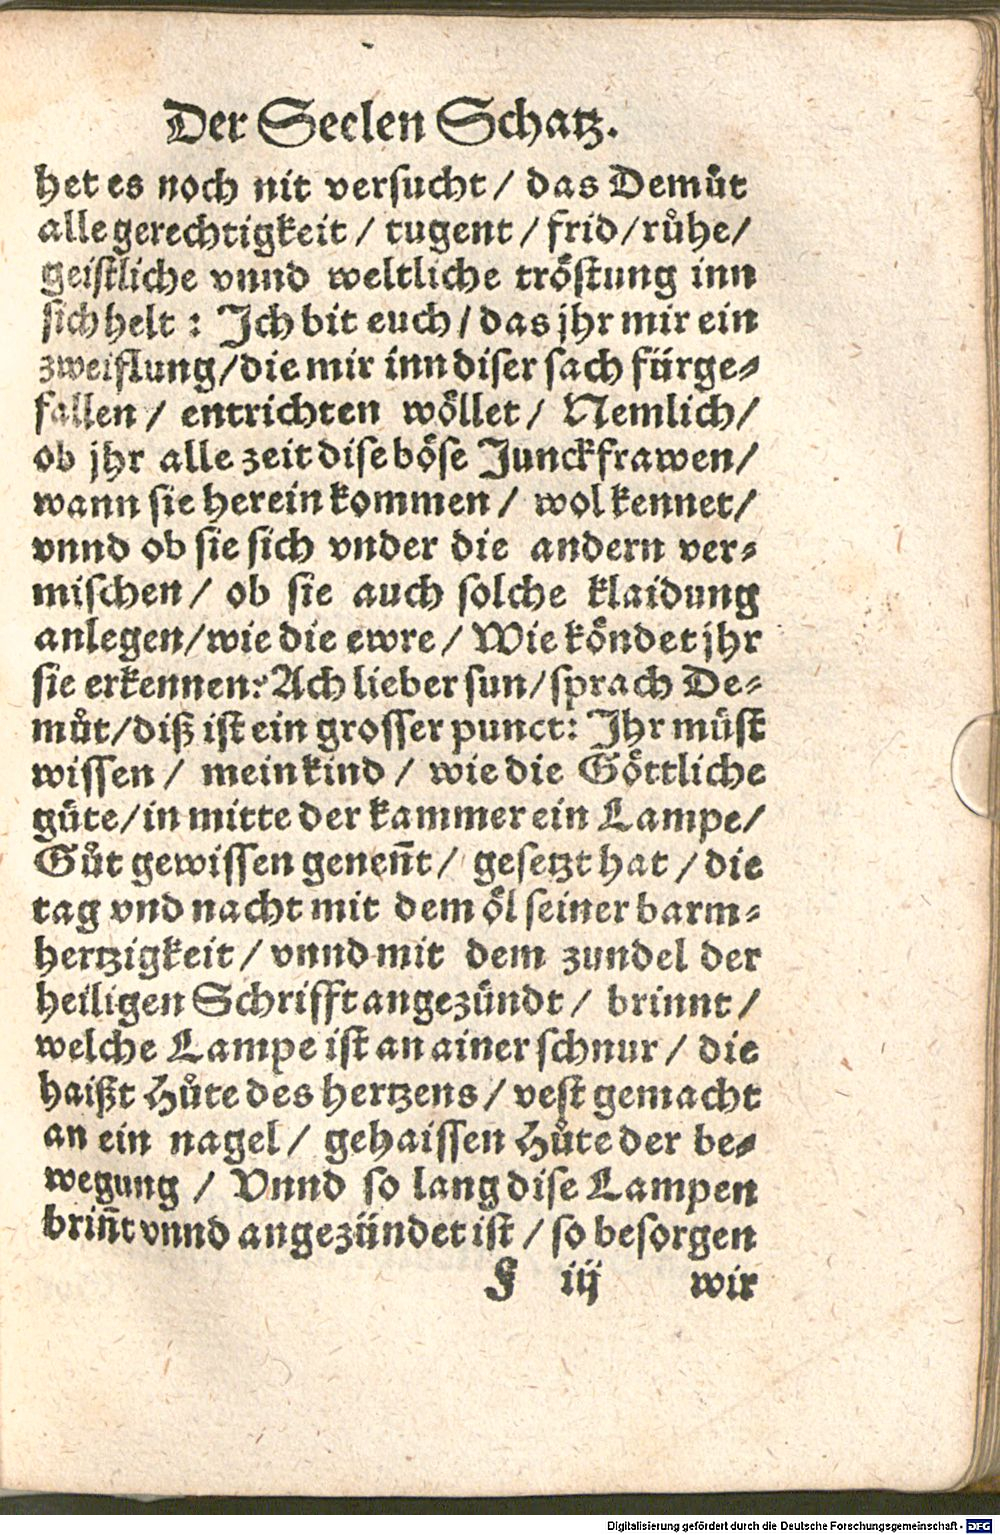 Der Seelen Schatz.
het es noch nit versucht / das Demůt
alle gerechtigkeit / tugent / frid / růhe /
geistliche vnnd weltliche tröstung inn
sich helt : Ich bit euch / das jhr mir ein
zweiflung / die mir inn diser sach fürge-
fallen / entrichten wöllet / Nemlich /
ob jhr alle zeit dise böse Junckfrawen /
wann sie herein kommen / wol kennet /
vnnd ob sie sich vnder die andern ver-
mischen / ob sie auch solche klaidung
anlegen / wie die ewre / Wie köndet jhr
sie erkennen? Ach lieber sun / sprach De-
můt / diß ist ein grosser punct: Ihr müst
wissen / mein kind / wie die Göttliche
güte / in mitte der kammer ein Lampe /
Gůt gewissen geneñt / gesetzt hat / die
tag vnd nacht mit dem öl seiner barm-
hertzigkeit / vnnd mit dem zundel der
heiligen Schrifft angezündt / brinnt /
welche Lampe ist an ainer schnur / die
haißt Hůte des hertzens / vest gemacht
an ein nagel / gehaissen Hůte der be-
wegung / Vnnd so lang dise Lampen
briñt vnnd angezündet ist / so besorgen
§ iij wir
Digitalisierung gefördert durch die Deutsche Forschungsgemeinschaft - DFG